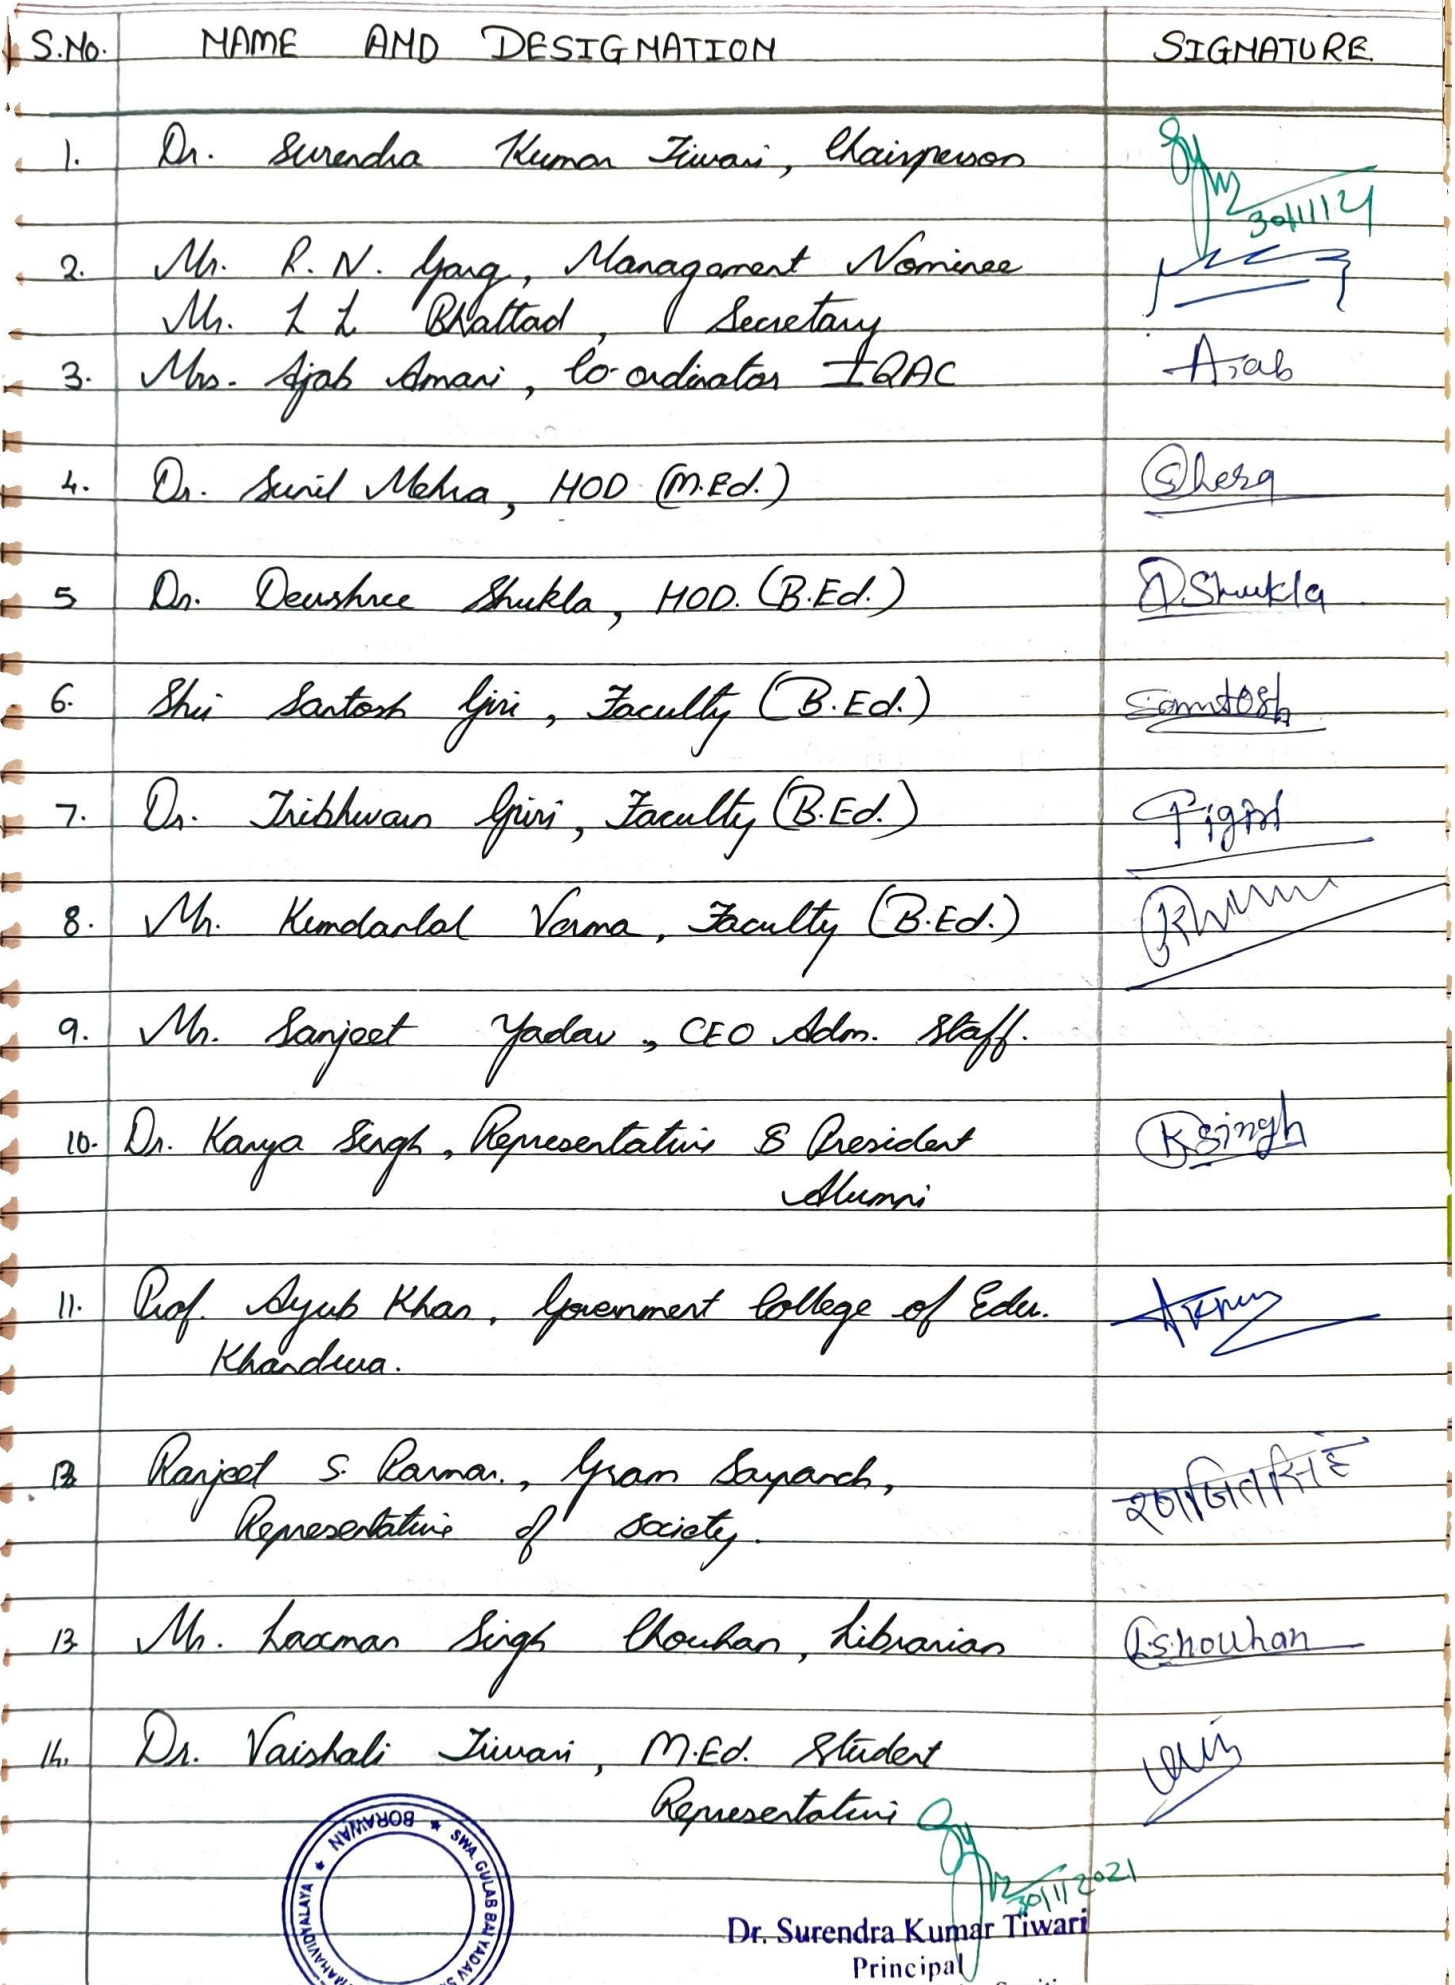 S.No. NAME AND DESIGNATION SIGNATURE
1. Dr. Surendra Kumar Tiwari, Chairperson
30/11/21
2. Mr. R. N. Garg, Managament Nominee
Mr. L L Bhattad, Secretary
3. Mrs. Ajab Amari, Co-ordinator IQAC Ajab
4. Dr. Sunil Mehra, HOD (M.Ed.)
5 Dr. Devshree Shukla, HOD. (B.Ed.) DShukla
6. Shri Santosh Giri, Faculty (B.Ed.) Santosh
7. Dr. Tribhwan Giri, Faculty (B.Ed.)
8. Mr. Kundanlal Verma, Faculty (B.Ed.)
9. Mr. Sanjeet Yadav, CEO Adm. Staff.
10. Dr. Kavya Singh, Representative & President KSingh
Alumni
11. Prof. Ayub Khan, Government College of Edu.
Khandwa.
12 Ranjeet S. Parmar., Gram Sarpanch, रणजितसिंह
Representative of society.
13 Mr. Laxman Singh Chouhan, Librarian
14. Dr. Vaishali Tiwari, M.Ed. Student
Representative
30/11/2021
MAHAVIDYALAYA ★ BORAWAN ★ SWA. GULAB BAI YADAV
Dr. Surendra Kumar Tiwari
Principal